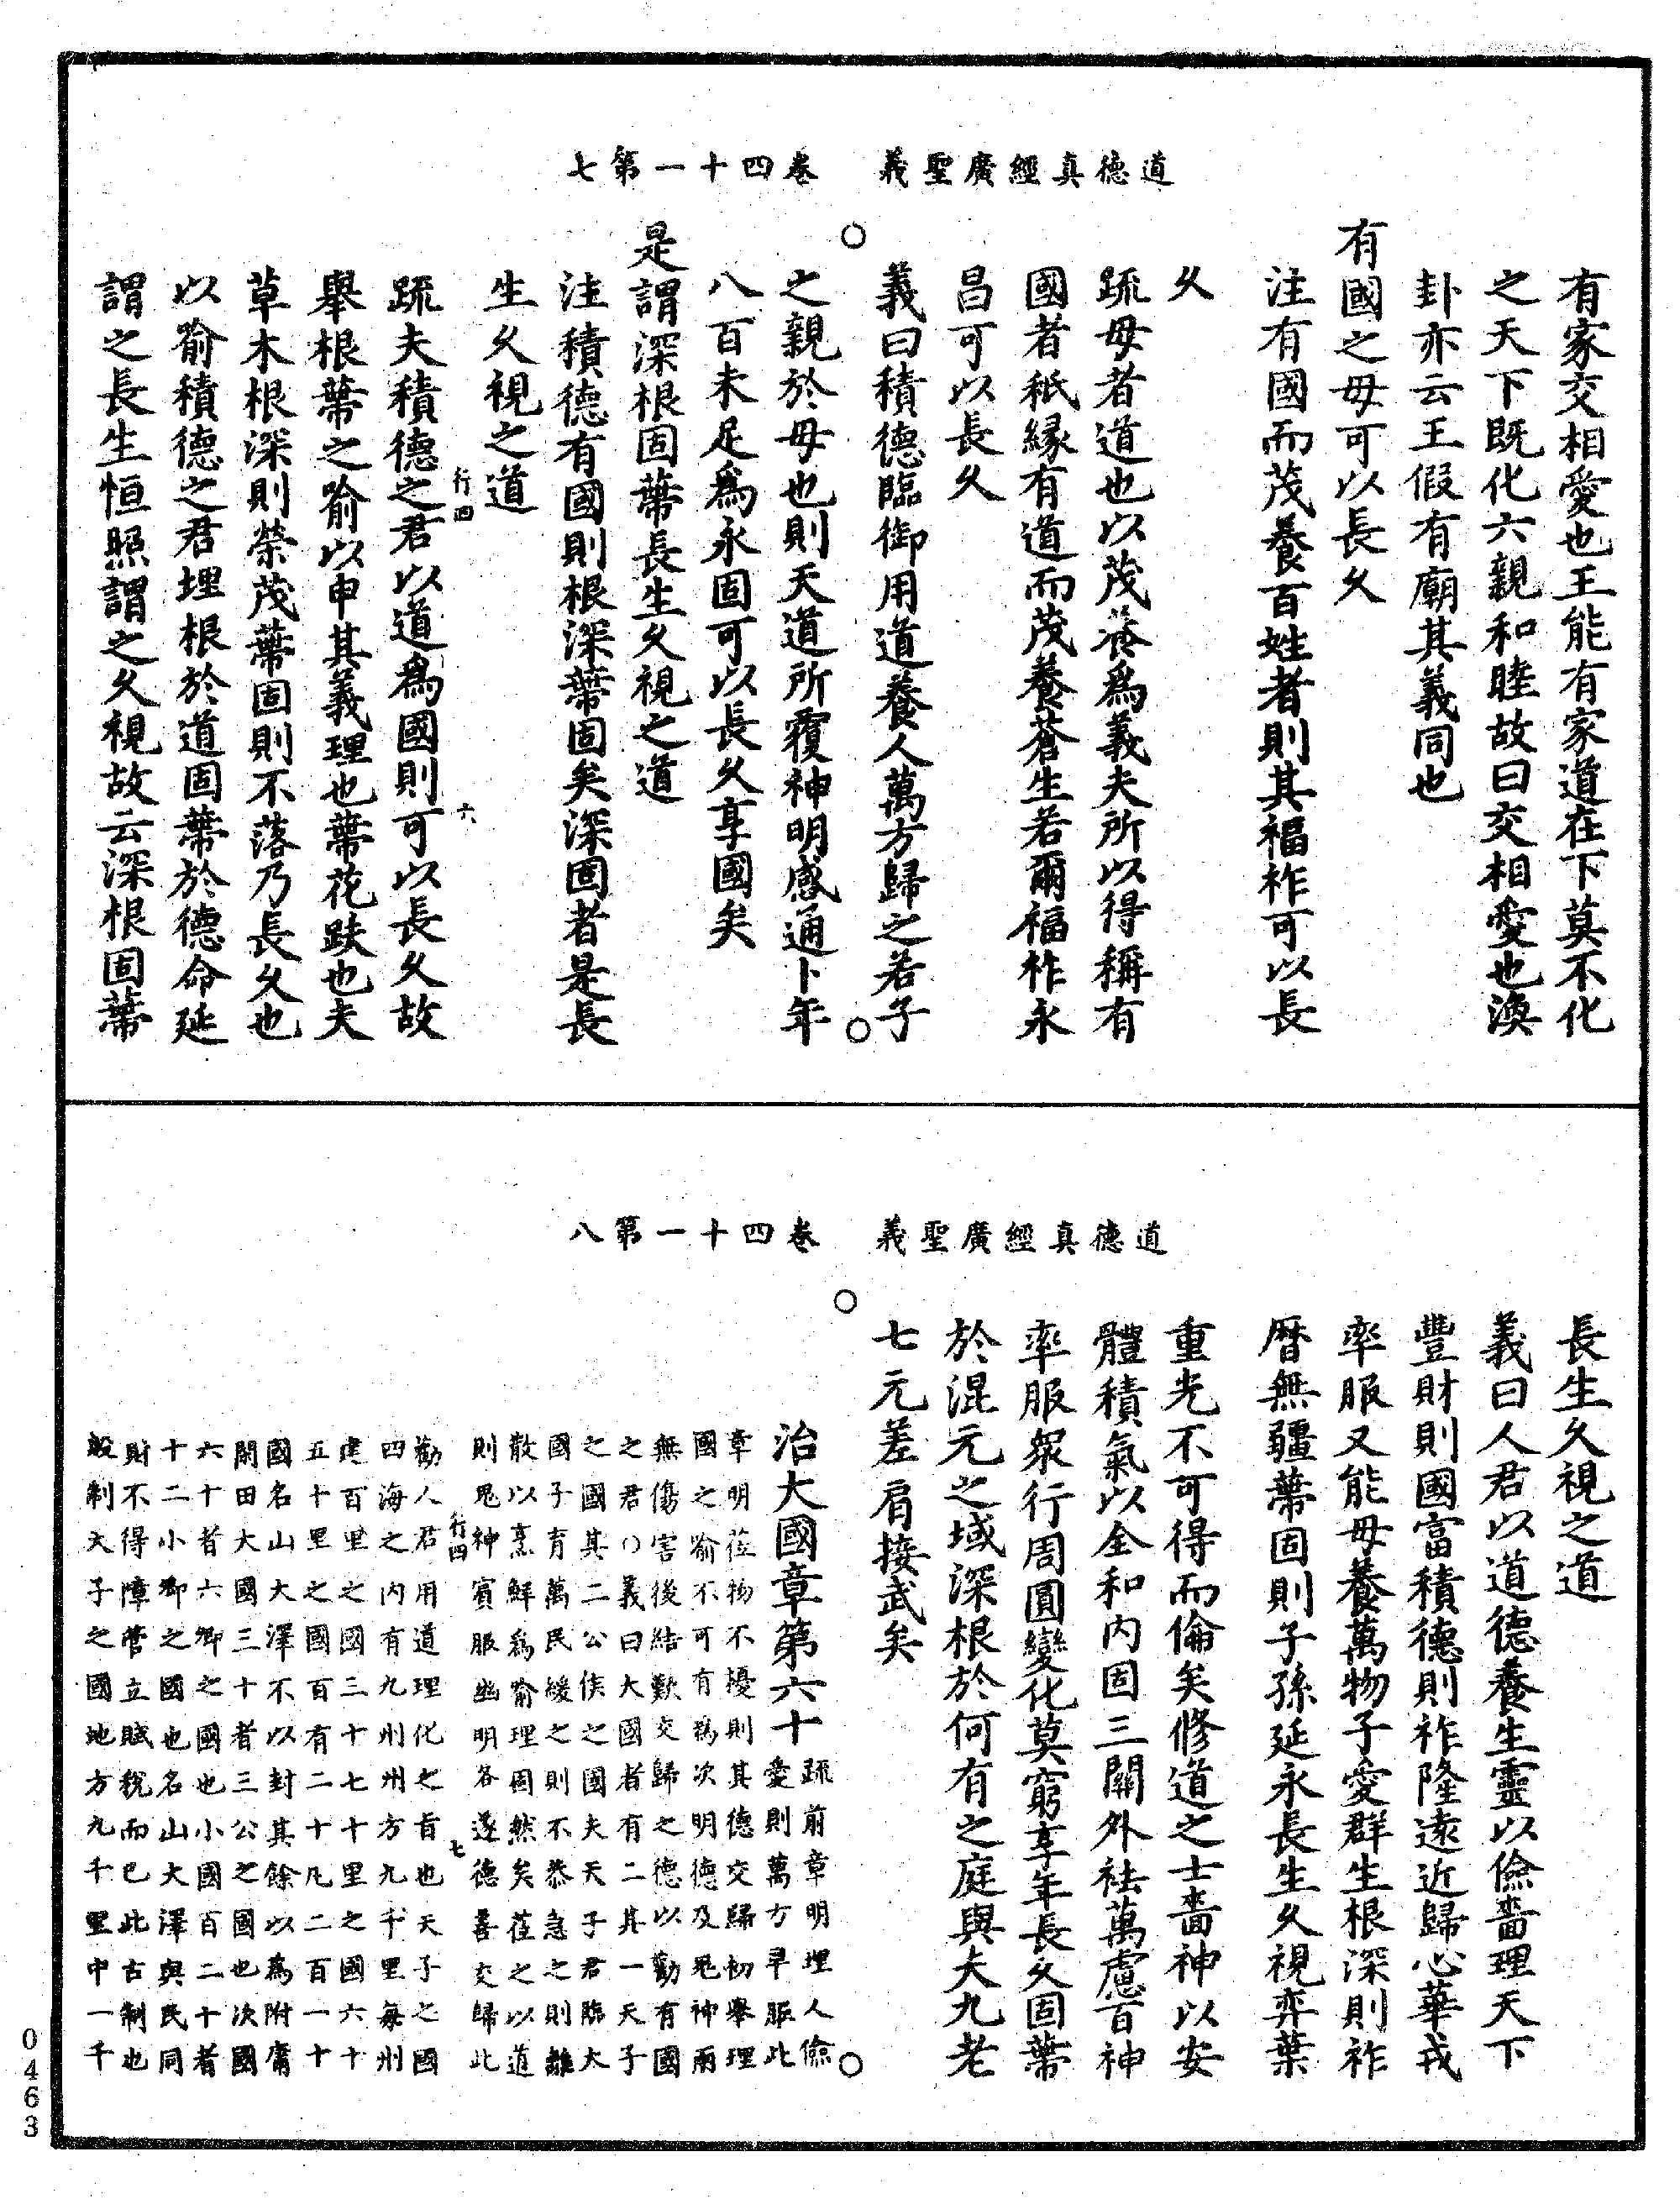 道德真經廣聖義　卷四十一第七
有家交相愛也王能有家道在下莫不化
之天下既化六親和睦故曰交相愛也渙
卦亦云王假有廟其義同也
有國之母可以長久
注有國而茂養百姓者則其福祚可以長
久
疏母者道也以茂養為義夫所以得稱有
國者秖緣有道而茂養蒼生若爾福祚永
昌可以長久
義曰積德臨御用道養人萬方歸之若子
之親於母也則天道所覆神明感通卜年
八百未足為永固可以長久享國矣
是謂深根固蔕長生久視之道
注積德有國則根深蔕固矣深固者是長
生久視之道
行四　六
疏夫積德之君以道為國則可以長久故
舉根蔕之喻以申其義理也蔕花趺也夫
草木根深則榮茂蔕固則不落乃長久也
以喻積德之君埋根於道固蔕於德命延
謂之長生恒照謂之久視故云深根固蔕
道德真經廣聖義　卷四十一第八
長生久視之道
義曰人君以道德養生靈以儉嗇理天下
豐財則國富積德則祚隆遠近歸心華戎
率服又能母養萬物子愛群生根深則祚
曆無疆蔕固則子孫延永長生久視弈葉
重光不可得而倫矣修道之士嗇神以安
體積氣以全和內固三關外袪萬慮百神
率服眾行周圓變化莫窮享年長久固蔕
於混元之域深根於何有之庭與夫九老
七元差肩接武矣
治大國章第六十
疏前章明理人儉
愛則萬方早服此
章明莅物不擾則其德交歸初舉理
國之喻不可有為次明德及鬼神兩
無傷害後結歎交歸之德以勸有國
之君○義曰大國者有二其一天子
之國其二公侯之國夫天子君臨大
國子育萬民緩之則不恭急之則離
散以烹鮮為喻理固然矣莅之以道
則鬼神賓服幽明各遂德善交歸此
行四　七
勸人君用道理化之旨也天子之國
四海之內有九州州方九千里每州
建百里之國三十七十里之國六十
五十里之國百有二十凡二百一十
國名山大澤不以封其餘以為附庸
閒田大國三十者三公之國也次國
六十者六卿之國也小國百二十者
十二小卿之國也名山大澤與民同
財不得障管立賦稅而已此古制也
殷制天子之國地方九千里中一千
0463